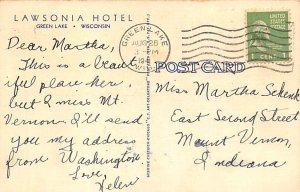 LAWSONIA HOTEL
GREEN LAKE • WISCONSIN
Dear Martha,
This is a beaut
iful place here,
but I miss Mt.
Vernon. I'll send
you my address
from Washington.
Love,
Helen
GREEN LAKE
WIS.
POST CARD
UNITED STATES POSTAGE
1 CENT 1
Miss Martha Schenk
East Second Street
Mount Vernon,
Indiana